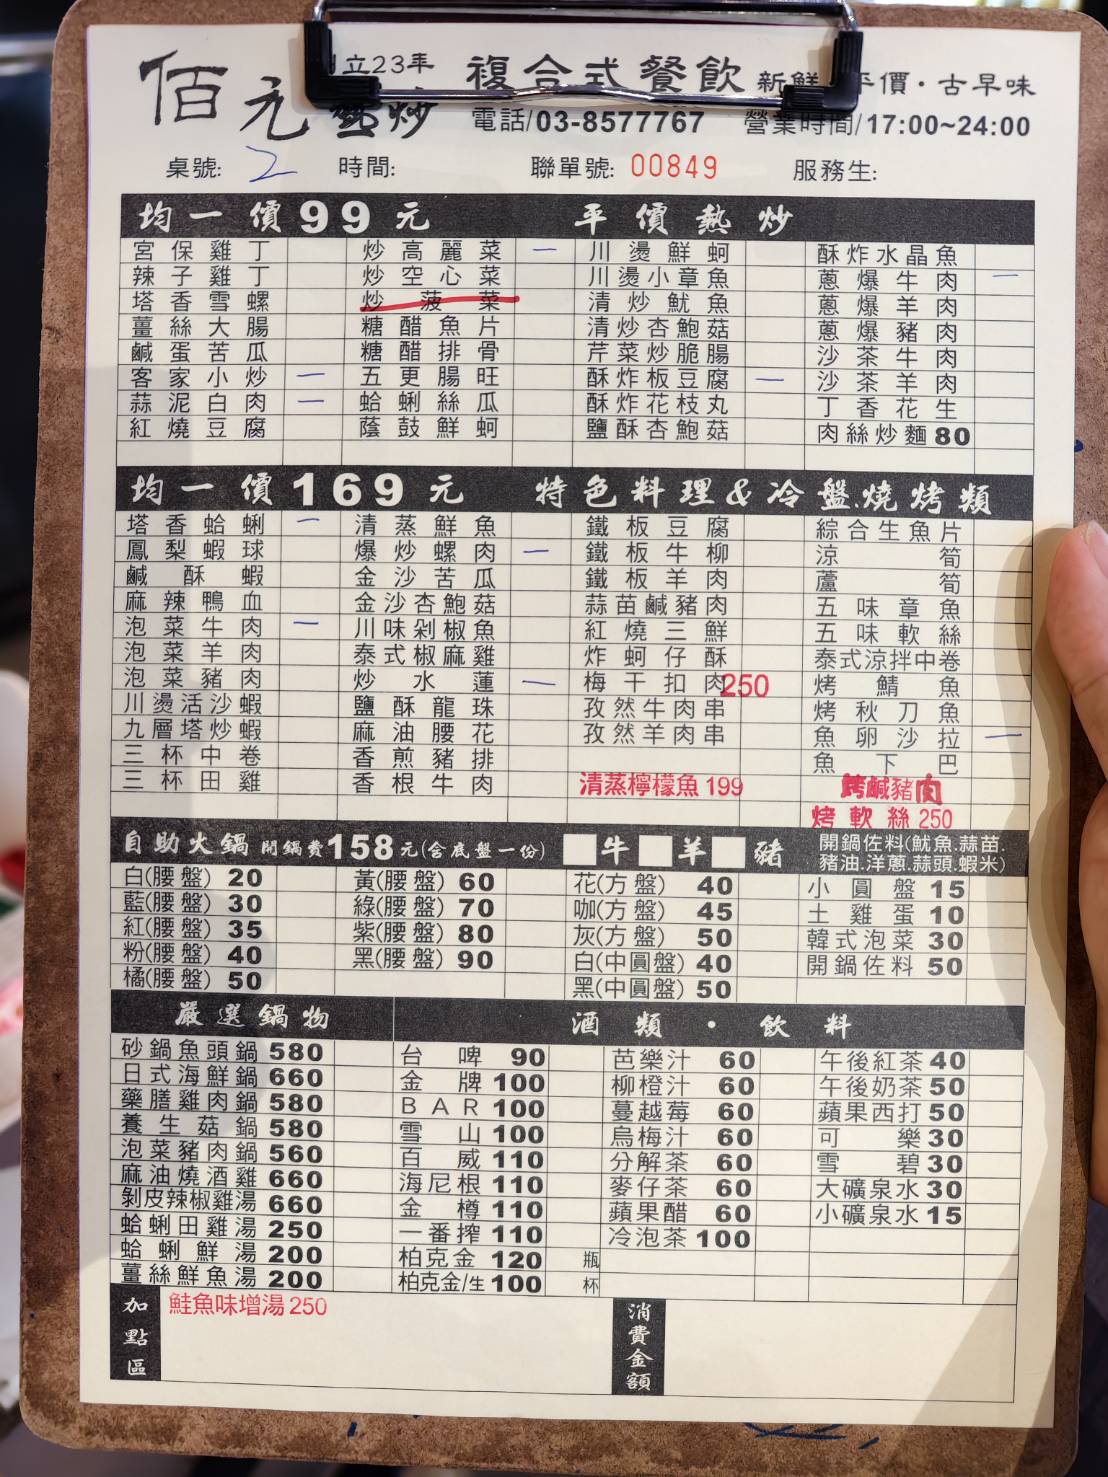 佰元熱炒 立23年 複合式餐飲 新鮮 平價・古早味
電話/03-8577767 營業時間/17:00~24:00
桌號: 2 時間: 聯單號: 00849 服務生:
均一價99元 平價熱炒
宮保雞丁 炒高麗菜 一 川燙鮮蚵 酥炸水晶魚
辣子雞丁 炒空心菜 川燙小章魚 蔥爆牛肉 一
塔香雪螺 炒菠菜 清炒魷魚 蔥爆羊肉
薑絲大腸 糖醋魚片 清炒杏鮑菇 蔥爆豬肉
鹹蛋苦瓜 糖醋排骨 芹菜炒脆腸 沙茶牛肉
客家小炒 一 五更腸旺 酥炸板豆腐 一 沙茶羊肉
蒜泥白肉 一 蛤蜊絲瓜 酥炸花枝丸 丁香花生
紅燒豆腐 蔭鼓鮮蚵 鹽酥杏鮑菇 肉絲炒麵80
均一價169元 特色料理&冷盤.燒烤類
塔香蛤蜊 一 清蒸鮮魚 鐵板豆腐 綜合生魚片
鳳梨蝦球 爆炒螺肉 一 鐵板牛柳 涼筍
鹹酥蝦 金沙苦瓜 鐵板羊肉 蘆筍
麻辣鴨血 金沙杏鮑菇 蒜苗鹹豬肉 五味章魚
泡菜牛肉 一 川味剁椒魚 紅燒三鮮 五味軟絲
泡菜羊肉 泰式椒麻雞 炸蚵仔酥 泰式涼拌中卷
泡菜豬肉 炒水蓮 一 梅干扣肉250 烤鯖魚
川燙活沙蝦 鹽酥龍珠 孜然牛肉串 烤秋刀魚
九層塔炒蝦 麻油腰花 孜然羊肉串 魚卵沙拉 一
三杯中卷 香煎豬排 魚下巴
三杯田雞 香根牛肉 清蒸檸檬魚199 烤鹹豬肉
烤軟絲250
自助火鍋 開鍋費158元(含底盤一份) 牛 羊 豬 開鍋佐料(魷魚.蒜苗.
豬油.洋蔥.蒜頭.蝦米)
白(腰盤) 20 黃(腰盤) 60 花(方盤) 40 小圓盤 15
藍(腰盤) 30 綠(腰盤) 70 咖(方盤) 45 土雞蛋 10
紅(腰盤) 35 紫(腰盤) 80 灰(方盤) 50 韓式泡菜 30
粉(腰盤) 40 黑(腰盤) 90 白(中圓盤) 40 開鍋佐料 50
橘(腰盤) 50 黑(中圓盤) 50
嚴選鍋物 酒類・飲料
砂鍋魚頭鍋 580 台啤 90 芭樂汁 60 午後紅茶 40
日式海鮮鍋 660 金牌 100 柳橙汁 60 午後奶茶 50
藥膳雞肉鍋 580 BAR 100 蔓越莓 60 蘋果西打 50
養生菇鍋 580 雪山 100 烏梅汁 60 可樂 30
泡菜豬肉鍋 560 百威 110 分解茶 60 雪碧 30
麻油燒酒雞 660 海尼根 110 麥仔茶 60 大礦泉水 30
剝皮辣椒雞湯 660 金樽 110 蘋果醋 60 小礦泉水 15
蛤蜊田雞湯 250 一番搾 110 冷泡茶 100
蛤蜊鮮湯 200 柏克金 120 瓶
薑絲鮮魚湯 200 柏克金/生 100 杯
加點區 鮭魚味增湯250 消費金額